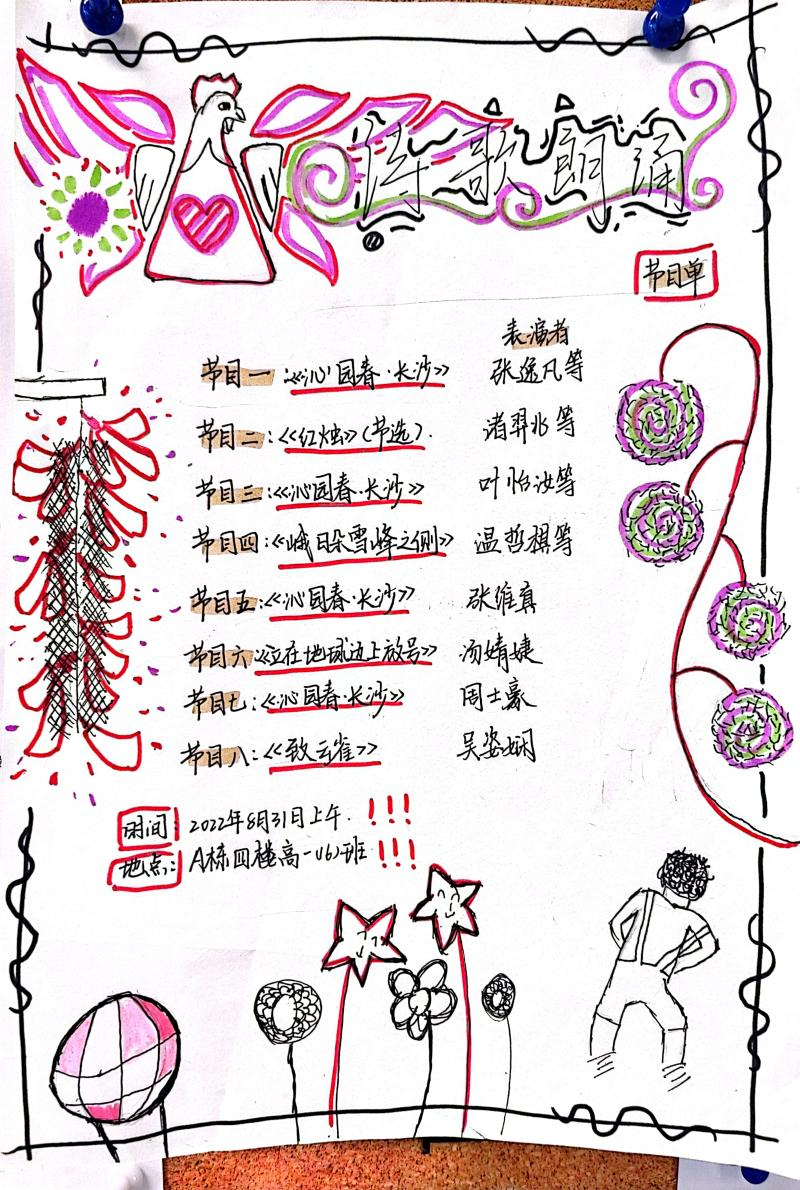 诗歌朗诵
节目单
表演者
节目一:《沁园春·长沙》 张逸凡等
节目二:《红烛》(节选). 诸羿兆等
节目三:《沁园春·长沙》 叶怡汝等
节目四:《峨日朵雪峰之侧》 温哲祺等
节目五:《沁园春·长沙》 张维真
节目六《立在地球边上放号》 汤婧婕
节目七:《沁园春·长沙》 周士豪
节目八:《致云雀》 吴姿娴
时间: 2022年8月31日上午. !!!
地点: A栋四楼高一(6)班 !!!